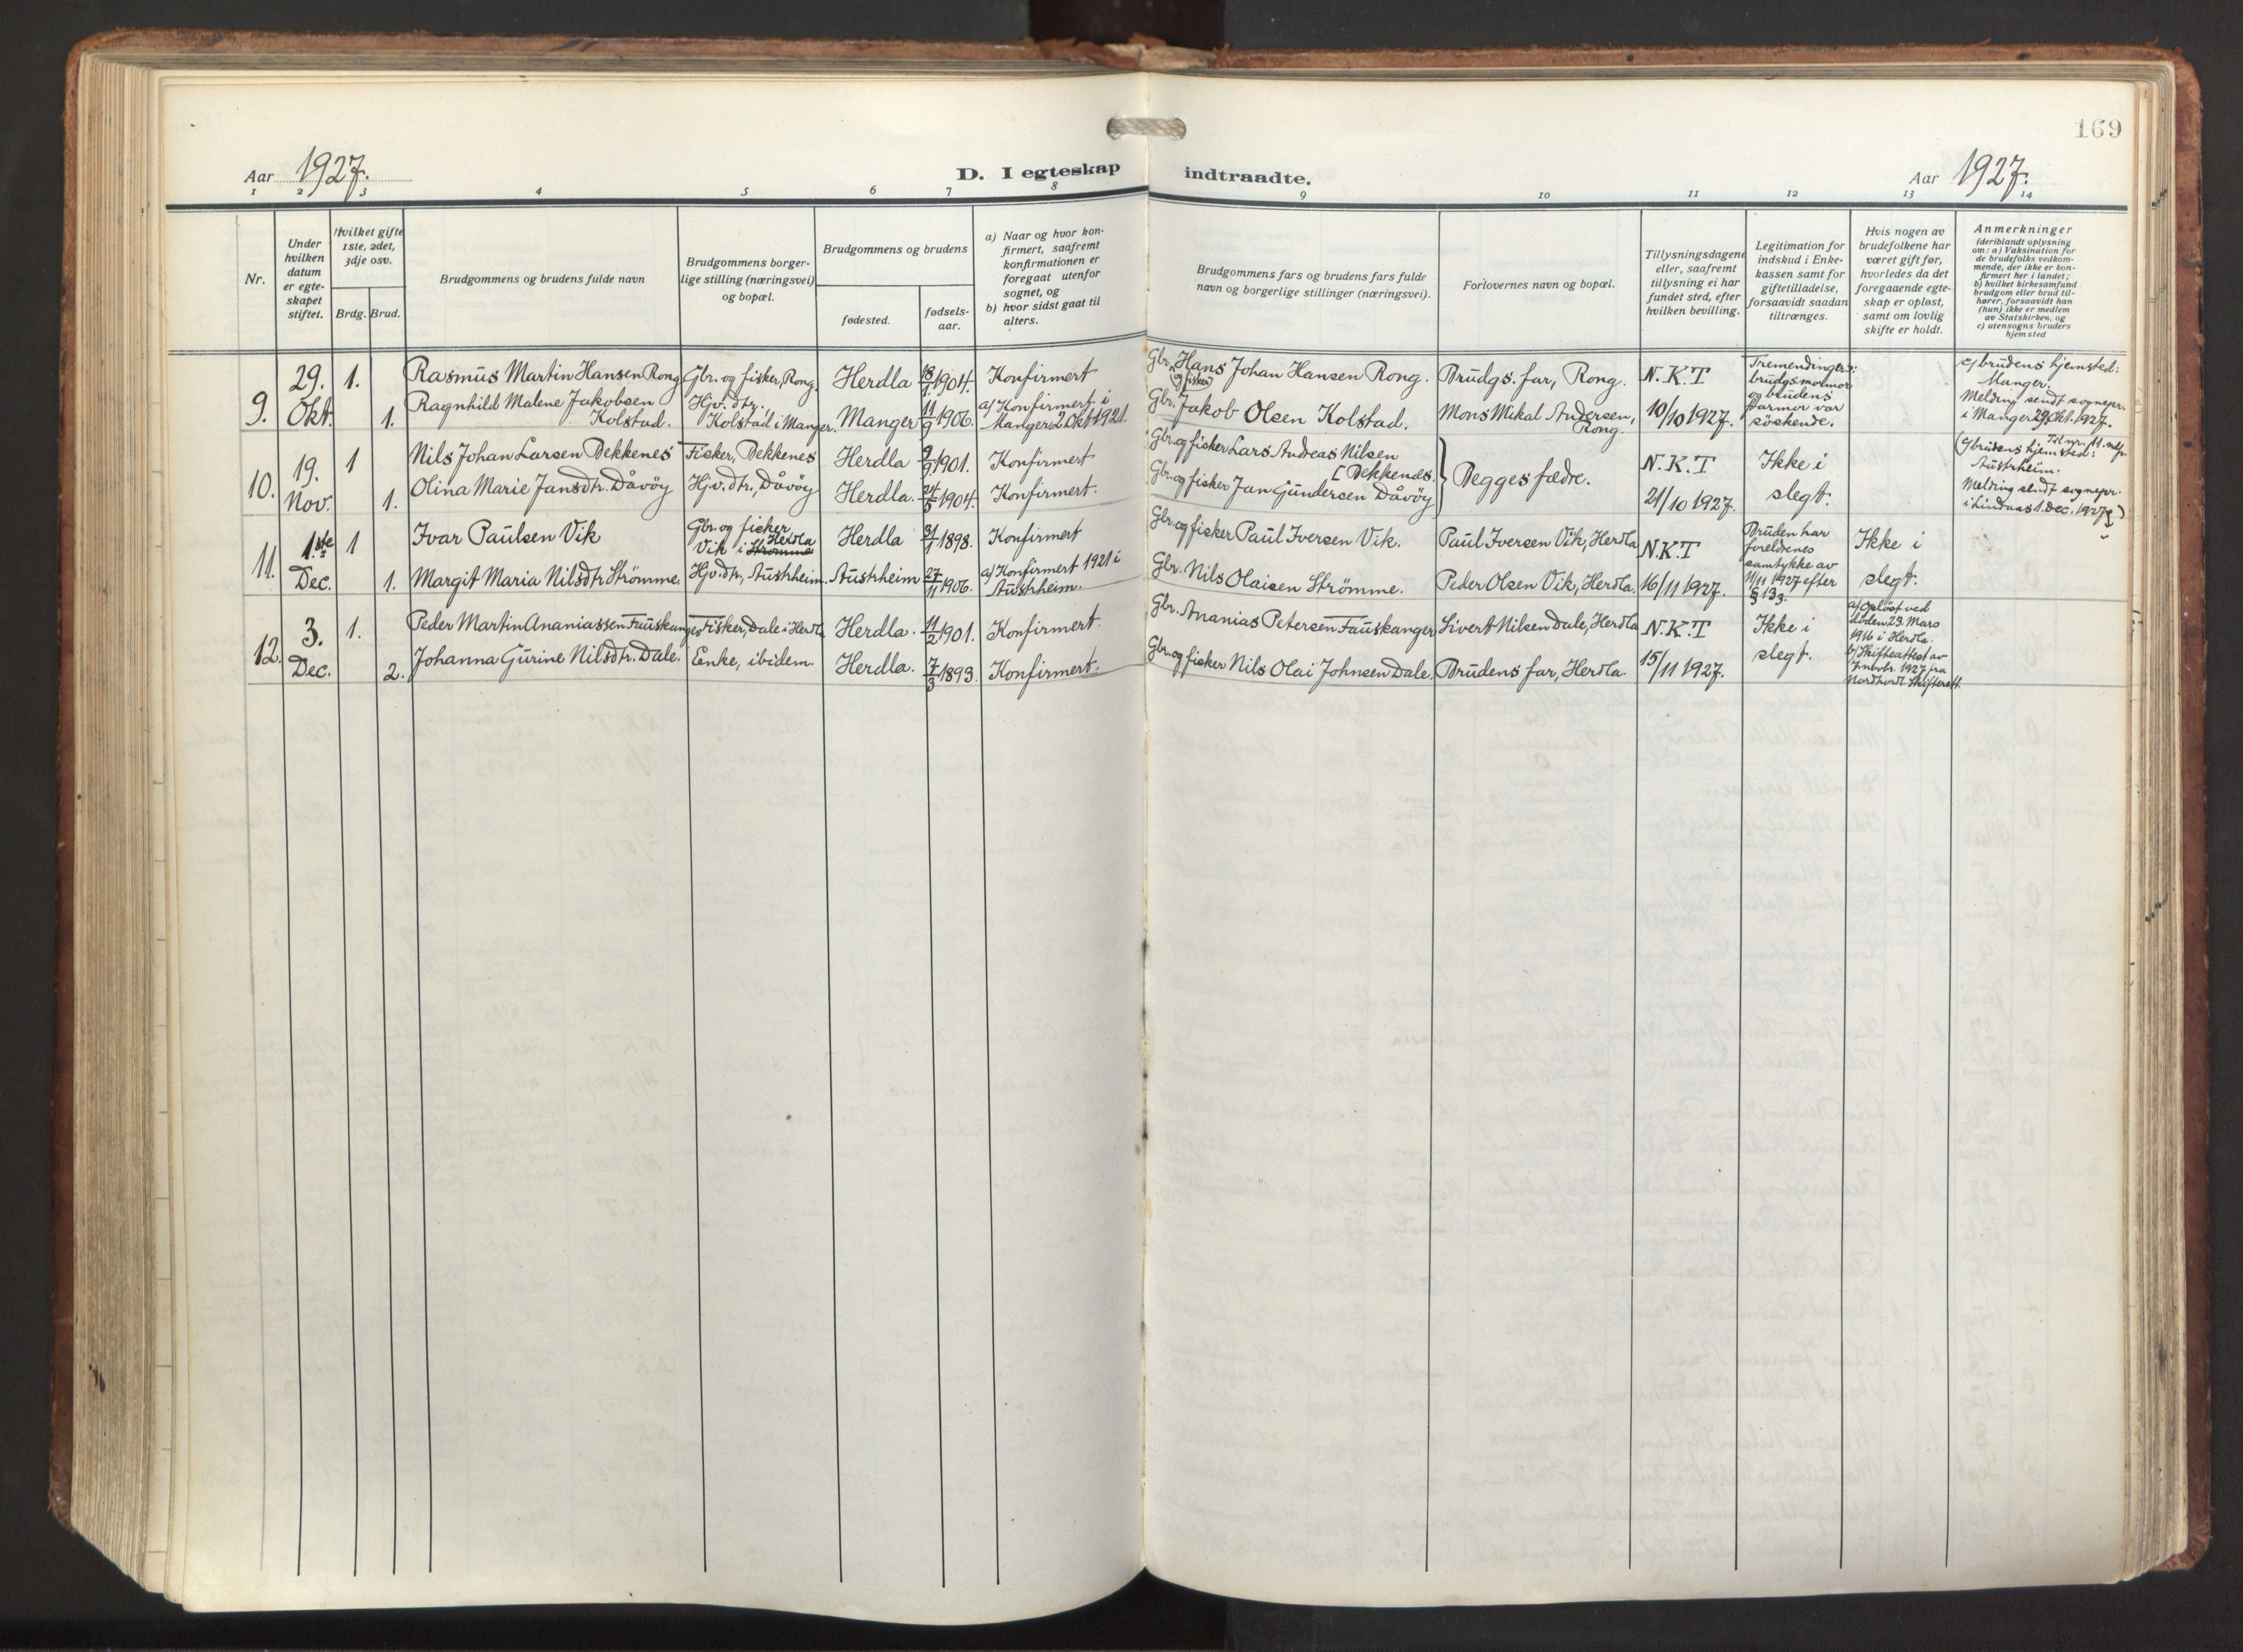 169
Aar 1927.
D. I egteskap indtraadte.
Aar 1927.
1 2 3 4 5 6 7 8 9 10 11 12 13 14
Nr.
Under
hvilken
datum
er egte-
skapet
stiftet.
Hvilket gifte
1ste, 2det,
3dje osv.
Brdg. Brud.
Brudgommens og brudens fulde navn
Brudgommens borger-
lige stilling (næringsvei)
og bopæl.
Brudgommens og brudens
fødested.
fødsels-
aar.
a) Naar og hvor kon-
firmert, saafremt
konfirmationen er
foregaat utenfor
sognet, og
b) hvor sidst gaat til
alters.
Brudgommens fars og brudens fars fulde
navn og borgerlige stillinger (næringsvei).
Forlovernes navn og bopæl.
Tillysningsdagene
eller, saafremt
tillysning ei har
fundet sted, efter
hvilken bevilling.
Legitimation for
indskud i Enke-
kassen samt for
giftetilladelse,
forsaavidt saadan
tiltrænges.
Hvis nogen av
brudefolkene har
været gift før,
hvorledes da det
foregaaende egte-
skap er opløst,
samt om lovlig
skifte er holdt.
Anmerkninger
(deriblandt oplysning
om: a) Vaksination for
de brudefolks vedkom-
mende, der ikke er kon-
firmert her i landet;
b) hvilket kirkesamfund
brudgom eller brud til-
hører, forsaavidt han
(hun) ikke er medlem
av Statskirken, og
c) utensogns bruders
hjemsted
9.
29.
Okt.
1.
1.
Rasmus Martin Hansen Rong
Ragnhild Malene Jakobsen
Kolstad.
Gbr. og fisker, Rong.
Hjv. dtr.,
Kolstad i Manger.
Herdla
Manger
18/1 1904.
11/9 1906.
Konfirmert
a) Konfirmert i
Manger 2 Okt 1921.
Gbr. og fisker Hans Johan Hansen Rong.
Gbr. Jakob Olsen Kolstad.
Brudgs. far, Rong.
Mons Mikal Andersen,
Rong.
N.K.T
10/10 1927.
Tremendinger:
brudgs mormor
og brudens
farmor var
söskende.
c) brudens hjemsted:
Manger.
Melding sendt sognepr.
i Manger 29 Okt. 1927.
10.
19.
Nov.
1
1.
Nils Johan Larsen Bekkenes
Olina Marie Jansdtr. Dåvöy
Fisker, Bekkenes
Hjv. dtr., Dåvöy
Herdla
Herdla.
9/9 1901.
24/5 1904.
Konfirmert
Konfirmert.
Gbr. og fisker Lars Andreas Nilsen
[Bekkenes.
Gbr. og fisker Jan Gundersen Dåvöy
Begges fædre.
N.K.T
21/10 1927.
Ikke i
slegt.
Til nr. 11.
(c) brudens hjemsted:
Austrheim.
Melding sendt sognepr.
i Lindaas 1. Dec. 1927)
11.
1.ste
Dec.
1
1.
Ivar Paulsen Vik
Margit Maria Nilsdtr Strömme.
Gbr. og fisker
Herdla
Vik i Strömme
Hjv. dtr, Austrheim.
Herdla
Austrheim
31/1 1898.
27/11 1906.
Konfirmert
a) Konfirmert 1921 i
Austrheim.
Gbr. og fisker Paul Iversen Vik.
Gbr. Nils Olaisen Strömme.
Paul Iversen Vik, Herdla
Peder Olsen Vik, Herdla.
N.K.T
16/11 1927.
Bruden har
foreldrenes
samtykke av
11/11 1927 efter
§ 133.
Ikke i
slegt.
12.
3.
Dec.
1.
2.
Peder Martin Ananiassen Fauskanger
Johanna Gurine Nilsdtr. Dale.
Fisker, Dale i Herdla
Enke, ibidem.
Herdla.
Herdla.
11/2 1901.
7/3 1893.
Konfirmert.
Konfirmert.
Gbr. Ananias Petersen Fauskanger
Gbr. og fisker Nils Olai Johnsen Dale.
Sivert Nilsen Dale, Herdla
Brudens far, Herdla
N.K.T
15/11 1927.
Ikke i
slegt.
a) Oplöst ved
döden 23. Mars
1916 i Herdla.
b) Skifteattest av
1927 fra
Nordhordl Skifterett.